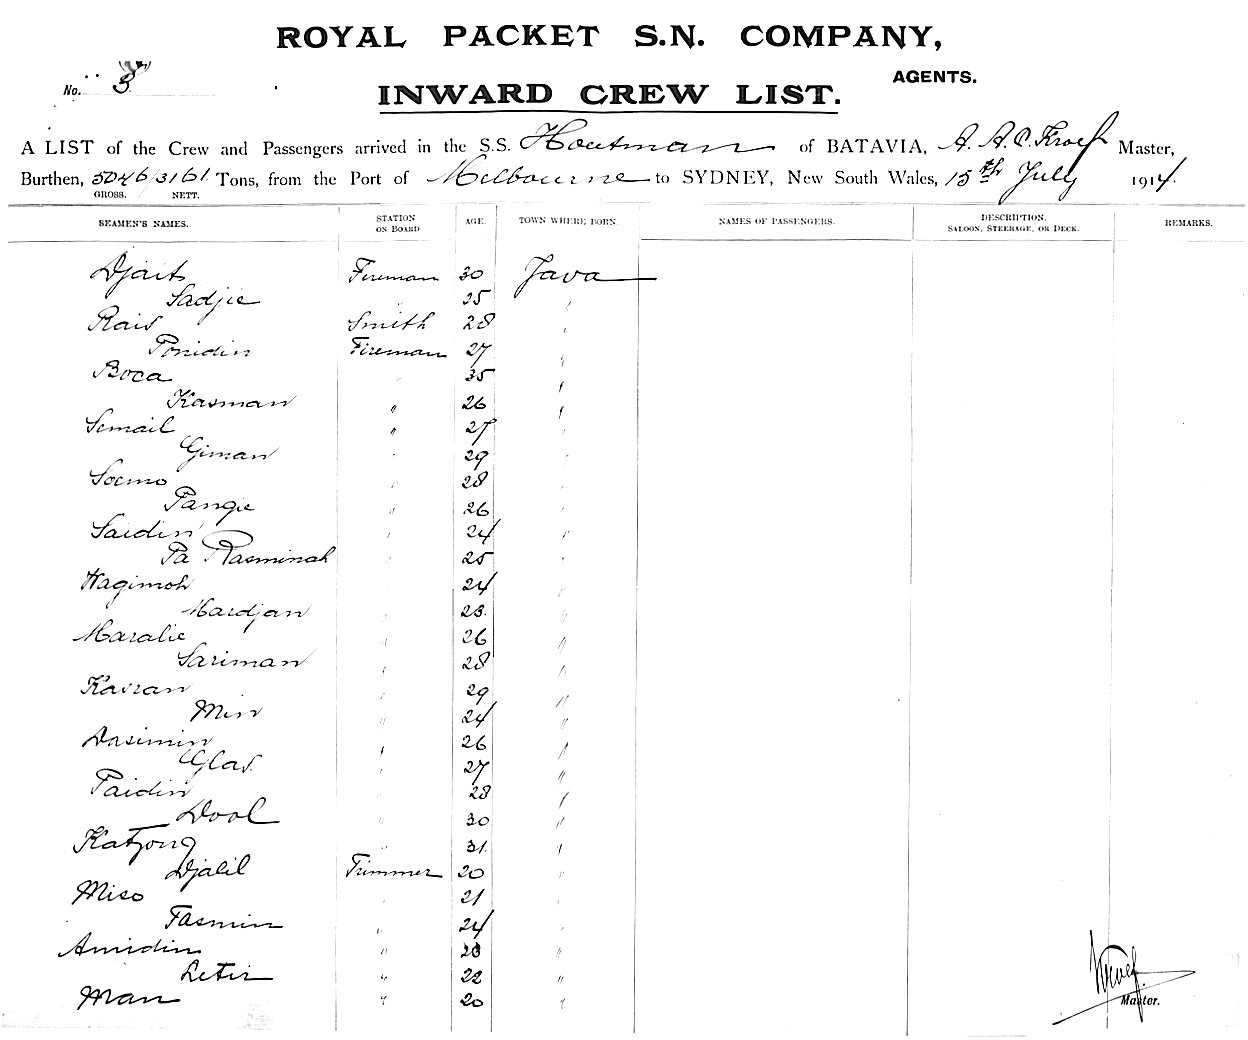 ROYAL PACKET S.N. COMPANY,
AGENTS.
No. 3
INWARD CREW LIST.
A LIST of the Crew and Passengers arrived in the S.S. Houtman of BATAVIA, A. A. C. Kroef Master,
Burthen, 5046/3161 Tons, from the Port of Melbourne to SYDNEY, New South Wales, 15th July 1914.
GROSS. NETT.
SEAMEN'S NAMES. STATION ON BOARD AGE. TOWN WHERE BORN. NAMES OF PASSENGERS. DESCRIPTION. SALOON, STEERAGE, OR DECK. REMARKS.
Djait Fireman 30 Java
Sadjie " 25 "
Rais Smith 28 "
Ponidin Fireman 27 "
Boca " 35 "
Kasman " 26 "
Semail " 27 "
Giman " 29 "
Soemo " 28 "
Pangie " 26 "
Saidin " 24 "
Pa Rasminah " 25 "
Wagimoh " 24 "
Mardjan " 23 "
Maralie " 26 "
Sariman " 28 "
Kasran " 29 "
Min " 24 "
Dasimin " 26 "
Glas " 27 "
Paidin " 28 "
Dool " 30 "
Katjong " 31 "
Djalil Trimmer 20 "
Miso " 21 "
Tasmin " 24 "
Amidin " 23 "
Letir " 22 "
Man " 20 "
Kroef
Master.